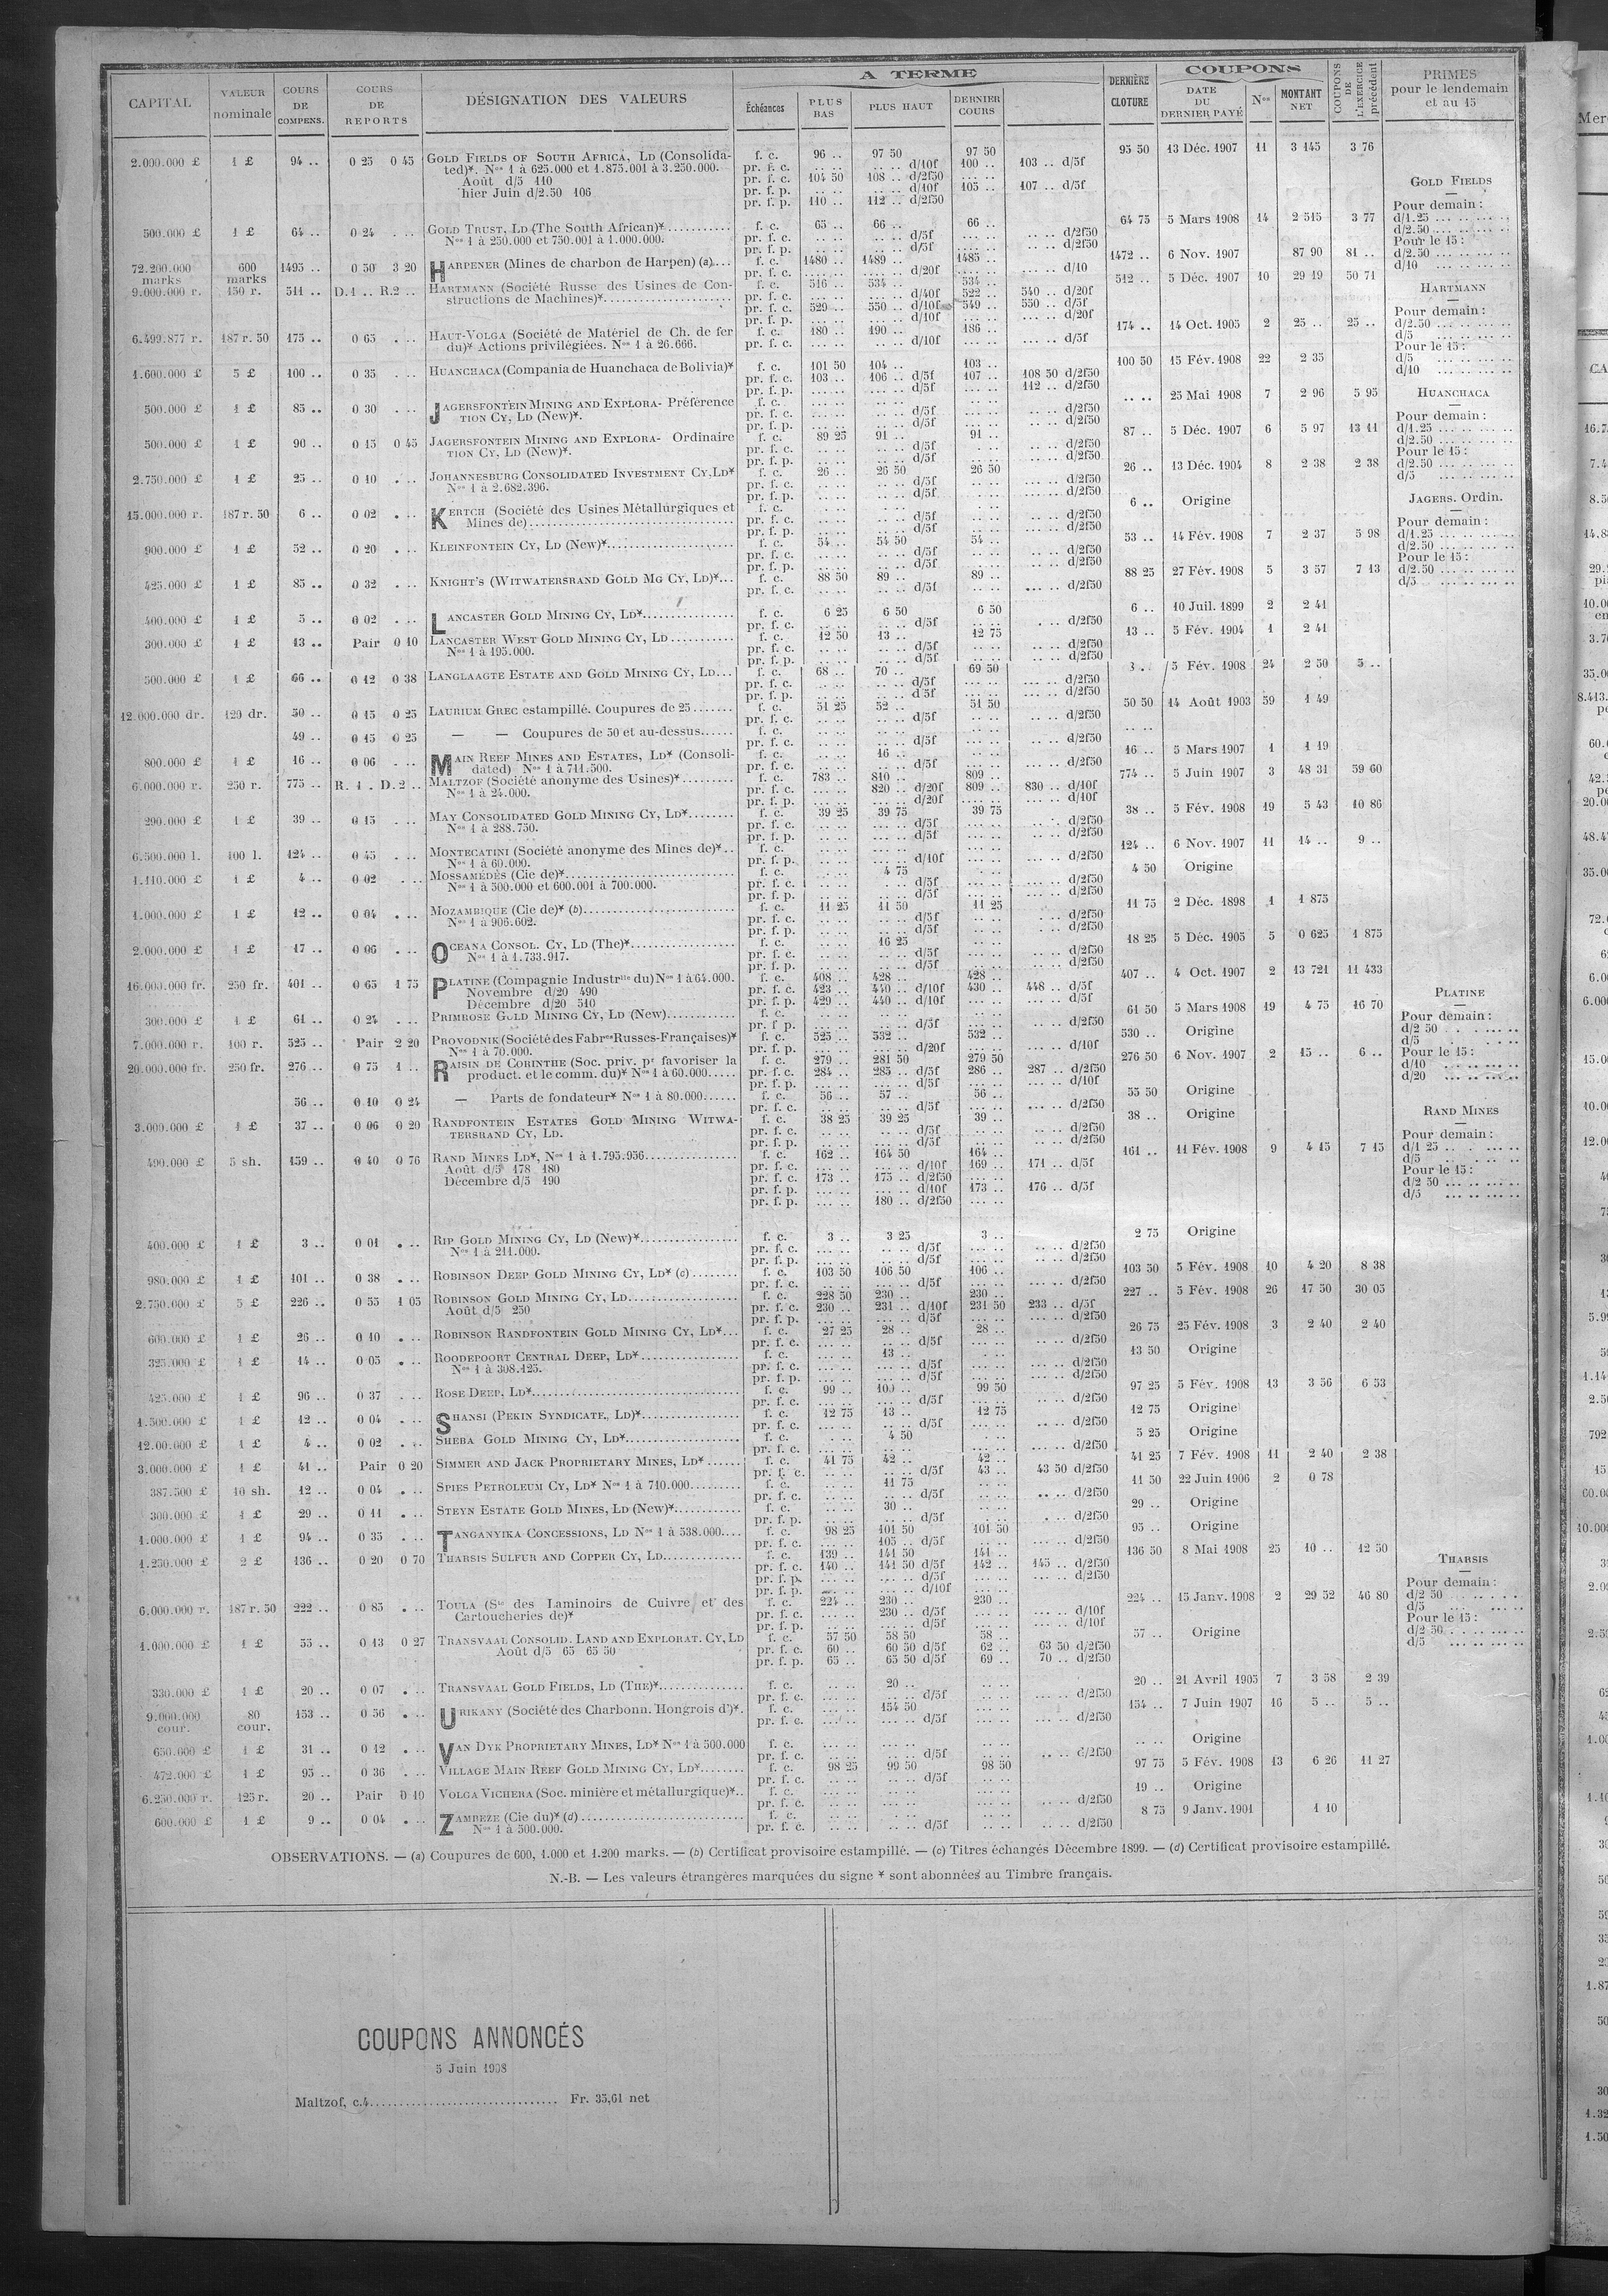 CAPITAL
VALEUR nominale
COURS DE COMPENS.
COURS DE REPORTS
DÉSIGNATION DES VALEURS
A TERME
Échéances
PLUS BAS
PLUS HAUT
DERNIER COURS
DERNIÈRE CLOTURE
COUPONS
DATE DU DERNIER PAYÉ
Nos
MONTANT NET
COUPONS DE L'EXERCICE précédent
PRIMES pour le lendemain et au 15
2.000.000 £ 1 £ 94 .. 0 25 0 45 GOLD FIELDS OF SOUTH AFRICA, LD (Consolida- f. c. 96 .. 97 50 97 50 95 50 13 Déc. 1907 11 3 145 3 76
ted)*. Nos 1 à 625.000 et 1.875.001 à 3.250.000. pr. f. c. .. .. .. .. d/10f 100 .. 103 .. d/5f
Août d/5 110 pr. f. c. 104 50 108 .. d/2f50
hier Juin d/2.50 106 pr. f. p. .. .. .. .. d/10f 105 .. 107 .. d/5f
pr. f. p. 110 .. 112 .. d/2f50
500.000 £ 1 £ 64 .. 0 24 . .. GOLD TRUST, LD (The South African)* f. c. 65 .. 66 .. 66 .. 64 75 5 Mars 1908 14 2 515 3 77
Nos 1 à 250.000 et 750.001 à 1.000.000. pr. f. c. .. .. .. .. d/5f .. .. d/2f50
pr. f. p. .. .. .. .. d/5f .. .. d/2f50
72.200.000 marks 600 marks 1495 .. 0 50 3 20 HARPENER (Mines de charbon de Harpen) (a).... f. c. 1480 .. 1489 .. 1485 .. 1472 .. 6 Nov. 1907 87 90 81 ..
pr. f. c. .... .. .... .. d/20f .... .. ... .. d/10
9.000.000 r. 150 r. 511 .. D.1 .. R.2 .. HARTMANN (Société Russe des Usines de Con- f. c. 516 .. 534 .. 534 .. 512 .. 5 Déc. 1907 10 29 19 50 71
structions de Machines)* pr. f. c. ... .. ... .. d/40f 522 .. 540 .. d/20f
pr. f. c. 529 .. 550 .. d/10f 549 .. 550 .. d/5f
pr. f. p. ... .. ... .. d/10f ... .. ... .. d/20f
6.499.877 r. 187 r. 50 175 .. 0 65 . .. HAUT-VOLGA (Société de Matériel de Ch. de fer f. c. 180 .. 190 .. 186 .. 174 .. 14 Oct. 1905 2 25 .. 25 ..
du)* Actions privilégiées. Nos 1 à 26.666. pr. f. c. ... .. ... .. d/10f ... .. ... .. d/5f
1.600.000 £ 5 £ 100 .. 0 35 . .. HUANCHACA (Compania de Huanchaca de Bolivia)* f. c. 101 50 104 .. 103 .. 100 50 15 Fév. 1908 22 2 35
pr. f. c. 103 .. 106 .. d/5f 107 .. 108 50 d/2f50
pr. f. p. ... .. ... .. d/5f ... .. 112 .. d/2f50
500.000 £ 1 £ 85 .. 0 30 . .. JAGERSFONTEIN MINING AND EXPLORA- Préférence f. c. .. .. .. .. .. .. .. .. 25 Mai 1908 7 2 96 5 95
TION CY, LD (New)*. pr. f. c. .. .. .. .. d/5f .. .. d/2f50
pr. f. p. .. .. .. .. d/5f .. .. d/2f50
500.000 £ 1 £ 90 .. 0 15 0 45 JAGERSFONTEIN MINING AND EXPLORA- Ordinaire f. c. 89 25 91 .. 91 .. 87 .. 5 Déc. 1907 6 5 97 13 11
TION CY, LD (New)*. pr. f. c. .. .. .. .. d/5f .. .. d/2f50
pr. f. p. .. .. .. .. d/5f .. .. d/2f50
2.750.000 £ 1 £ 25 .. 0 10 . .. JOHANNESBURG CONSOLIDATED INVESTMENT CY, LD* f. c. 26 .. 26 50 26 50 26 .. 13 Déc. 1904 8 2 38 2 38
Nos 1 à 2.682.396. pr. f. c. .. .. .. .. d/5f .. .. d/2f50
pr. f. p. .. .. .. .. d/5f .. .. d/2f50
15.000.000 r. 187 r. 50 6 .. 0 02 . .. KERTCH (Société des Usines Métallurgiques et f. c. .. .. .. .. .. .. 6 .. Origine
Mines de) pr. f. c. .. .. .. .. d/5f .. .. d/2f50
pr. f. p. .. .. .. .. d/5f .. .. d/2f50
900.000 £ 1 £ 52 .. 0 20 . .. KLEINFONTEIN CY, LD (New)* f. c. 54 .. 54 50 54 .. 53 .. 14 Fév. 1908 7 2 37 5 98
pr. f. c. .. .. .. .. d/5f .. .. d/2f50
pr. f. p. .. .. .. .. d/5f .. .. d/2f50
425.000 £ 1 £ 85 .. 0 32 . .. KNIGHT'S (WITWATERSRAND GOLD MG CY, LD)*... f. c. 88 50 89 .. 89 .. 88 25 27 Fév. 1908 5 3 57 7 13
pr. f. c. .. .. .. .. d/5f .. .. d/2f50
400.000 £ 1 £ 5 .. 0 02 . .. LANCASTER GOLD MINING CY, LD* f. c. 6 25 6 50 6 50 6 .. 10 Juil. 1899 2 2 41
pr. f. c. .. .. .. .. d/5f . .. d/2f50
300.000 £ 1 £ 13 .. Pair 0 10 LANCASTER WEST GOLD MINING CY, LD f. c. 12 50 13 .. 12 75 13 .. 5 Fév. 1904 1 2 41
Nos 1 à 195.000. pr. f. c. .. .. .. .. d/5f .. .. d/2f50
pr. f. p. .. .. .. .. d/5f .. .. d/2f50
500.000 £ 1 £ 66 .. 0 12 0 38 LANGLAAGTE ESTATE AND GOLD MINING CY, LD... f. c. 68 .. 70 .. 69 50 5 Fév. 1908 24 2 50 5 ..
pr. f. c. .. .. .. .. d/5f ... .. d/2f50
pr. f. p. .. .. .. .. d/5f ... .. d/2f50
12.000.000 dr. 120 dr. 50 .. 0 15 0 25 LAURIUM GREC estampillé. Coupures de 25 f. c. 51 25 52 .. 51 50 50 50 14 Août 1903 59 1 49
pr. f. c. .. .. .. .. d/5f .. .. d/2f50
49 .. 0 15 0 25 — — Coupures de 50 et au-dessus...... f. c. .. .. .. .. .. .. .. ..
pr. f. c. .. .. .. .. d/5f .. .. d/2f50
800.000 £ 1 £ 16 .. 0 06 . .. MAIN REEF MINES AND ESTATES, LD* (Consoli- f. c. .. .. 16 .. .. .. 16 .. 5 Mars 1907 1 1 19
dated) Nos 1 à 711.500. pr. f. c. .. .. .. .. d/5f .. .. d/2f50
6.000.000 r. 250 r. 775 .. R. 1 . D. 2 .. MALTZOF (Société anonyme des Usines)* f. c. 783 .. 810 .. 809 .. 774 .. 5 Juin 1907 3 48 31 59 60
Nos 1 à 24.000. pr. f. c. ... .. 820 .. d/20f 809 .. 830 .. d/10f
pr. f. p. ... .. ... .. d/20f ... .. ... .. d/10f
290.000 £ 1 £ 39 .. 0 15 . .. MAY CONSOLIDATED GOLD MINING CY, LD* f. c. 39 25 39 75 39 75 38 .. 5 Fév. 1908 19 5 43 10 86
Nos 1 à 288.750. pr. f. c. .. .. .. .. d/5f .. .. d/2f50
pr. f. p. .. .. .. .. d/5f .. .. d/2f50
6.500.000 l. 100 l. 124 .. 0 45 . .. MONTECATINI (Société anonyme des Mines de)*.. f. c. ... .. ... .. ... .. 124 .. 6 Nov. 1907 11 14 .. 9 ..
Nos 1 à 60.000. pr. f. p. ... .. ... .. d/10f ... .. d/2f50
1.110.000 £ 1 £ 4 .. 0 02 . .. MOSSAMÉDÈS (Cie de)* f. c. .. .. 4 75 . .. 4 50 Origine
Nos 1 à 500.000 et 600.001 à 700.000. pr. f. c. .. .. . .. d/5f .. .. d/2f50
pr. f. p. .. .. .. .. d/5f .. .. d/2f50
1.000.000 £ 1 £ 12 .. 0 04 . .. MOZAMBIQUE (Cie de)* (b) f. c. 11 25 11 50 11 25 11 75 2 Déc. 1898 1 1 875
Nos 1 à 906.602. pr. f. c. .. .. .. .. d/5f . .. d/2f50
pr. f. p. .. .. .. .. d/5f . .. d/2f50
2.000.000 £ 1 £ 17 .. 0 06 . .. OCEANA CONSOL. CY, LD (The)* f. c. .. .. 16 25 .. .. 18 25 5 Déc. 1905 5 0 625 1 875
Nos 1 à 1.733.917. pr. f. c. .. .. .. .. d/5f .. .. d/2f50
pr. f. p. .. .. .. .. d/5f .. .. d/2f50
16.000.000 fr. 250 fr. 401 .. 0 65 1 75 PLATINE (Compagnie Industrlle du) Nos 1 à 64.000. f. c. 408 .. 428 .. 428 .. 407 .. 4 Oct. 1907 2 13 721 11 433
Novembre d/20 490 pr. f. c. 423 .. 440 .. d/10f 430 .. 448 .. d/5f
Décembre d/20 510 pr. f. p. 429 .. 440 .. d/10f ... .. ... .. d/5f
300.000 £ 1 £ 61 .. 0 24 . .. PRIMROSE GOLD MINING CY, LD (New) f. c. .. .. .. .. .. .. 61 50 5 Mars 1908 19 4 75 16 70
pr. f. p. .. .. .. .. d/5f .. .. d/2f50
7.000.000 r. 100 r. 525 .. Pair 2 20 PROVODNIK (Société des Fabres Russes-Françaises)* f. c. 525 .. 532 .. 532 .. 530 .. Origine
Nos 1 à 70.000. pr. f. p. ... .. ... .. d/20f ... .. ... .. d/10f
20.000.000 fr. 250 fr. 276 .. 0 75 1 .. RAISIN DE CORINTHE (Soc. priv. pr favoriser la f. c. 279 .. 281 50 279 50 276 50 6 Nov. 1907 2 15 .. 6 ..
product. et le comm. du)* Nos 1 à 60.000 pr. f. c. 284 .. 285 .. d/5f 286 .. 287 .. d/2f50
pr. f. p. ... .. ... .. d/5f ... .. ... .. d/10f
56 .. 0 10 0 24 — Parts de fondateur* Nos 1 à 80.000...... f. c. 56 .. 57 .. 56 .. 55 50 Origine
pr. f. c. .. .. .. .. d/5f ... .. d/2f50
3.000.000 £ 1 £ 37 .. 0 06 0 20 RANDFONTEIN ESTATES GOLD MINING WITWA- f. c. 38 25 39 25 39 .. 38 .. Origine
TERSRAND CY, LD. pr. f. c. .. .. .. .. d/5f .. .. d/2f50
pr. f. p. .. .. .. .. d/5f .. .. d/2f50
490.000 £ 5 sh. 159 .. 0 40 0 76 RAND MINES LD*, Nos 1 à 1.795.956 f. c. 162 .. 164 50 164 .. 161 .. 11 Fév. 1908 9 4 15 7 15
Août d/5 178 180 pr. f. c. ... .. ... .. d/10f 169 .. 171 .. d/5f
Décembre d/5 190 pr. f. c. 173 .. 175 .. d/2f50
pr. f. p. ... .. ... .. d/10f 173 .. 176 .. d/5f
pr. f. p. ... .. 180 .. d/2f50
400.000 £ 1 £ 3 .. 0 01 . .. RIP GOLD MINING CY, LD (New)* f. c. 3 .. 3 25 3 .. 2 75 Origine
Nos 1 à 211.000. pr. f. c. .. .. .. .. d/5f .. .. d/2f50
pr. f. p. .. .. .. .. d/5f .. .. d/2f50
980.000 £ 1 £ 101 .. 0 38 . .. ROBINSON DEEP GOLD MINING CY, LD* (c) f. c. 103 50 106 50 106 .. 103 50 5 Fév. 1908 10 4 20 8 38
pr. f. c. ... .. ... .. d/5f ... .. d/2f50
2.750.000 £ 5 £ 226 .. 0 55 1 05 ROBINSON GOLD MINING CY, LD f. c. 228 50 230 .. 230 .. 227 .. 5 Fév. 1908 26 17 50 30 05
Août d/5 250 pr. f. c. 230 .. 231 .. d/10f 231 50 233 .. d/5f
pr. f. p. ... .. ... .. d/5f ... .. d/2f50
600.000 £ 1 £ 26 .. 0 10 . .. ROBINSON RANDFONTEIN GOLD MINING CY, LD*... f. c. 27 25 28 .. 28 .. 26 75 25 Fév. 1908 3 2 40 2 40
pr. f. c. .. .. .. .. d/5f ... .. d/2f50
325.000 £ 1 £ 14 .. 0 05 . .. ROODEPOORT CENTRAL DEEP, LD* f. c. .. .. 13 .. .. .. 13 50 Origine
Nos 1 à 308.125. pr. f. c. .. .. .. .. d/5f ... .. d/2f50
pr. f. p. .. .. .. .. d/5f ... .. d/2f50
425.000 £ 1 £ 96 .. 0 37 . .. ROSE DEEP, LD* f. c. 99 .. 100 .. 99 50 97 25 5 Fév. 1908 13 3 56 6 53
pr. f. c. .. .. ... .. d/5f ... .. d/2f50
1.500.000 £ 1 £ 12 .. 0 04 . .. SHANSI (PEKIN SYNDICATE, LD)* f. c. 12 75 13 .. 12 75 12 75 Origine
pr. f. c. .. .. .. .. d/5f .. .. d/2f50
12.00.000 £ 1 £ 4 .. 0 02 . .. SHEBA GOLD MINING CY, LD* f. c. .. .. 4 50 .. .. 5 25 Origine
pr. f. c. .. .. .. .. .. .. .. .. d/2f50
3.000.000 £ 1 £ 41 .. Pair 0 20 SIMMER AND JACK PROPRIETARY MINES, LD* f. c. 41 75 42 .. 42 .. 41 25 7 Fév. 1908 11 2 40 2 38
pr. f. c. .. .. .. .. d/5f 43 .. 43 50 d/2f50
387.500 £ 10 sh. 12 .. 0 04 . .. SPIES PETROLEUM CY, LD* Nos 1 à 710.000 f. c. .. .. 11 75 .. .. 11 50 22 Juin 1906 2 0 78
pr. f. c. .. .. .. .. d/5f .. .. d/2f50
300.000 £ 1 £ 29 .. 0 11 . .. STEYN ESTATE GOLD MINES, LD (New)* f. c. .. .. 30 .. .. .. 29 .. Origine
pr. f. p. .. .. .. .. d/5f . .. d/2f50
1.000.000 £ 1 £ 94 .. 0 35 . .. TANGANYIKA CONCESSIONS, LD Nos 1 à 538.000.... f. c. 98 25 101 50 101 50 95 .. Origine
pr. f. c. .. .. 105 .. d/5f ... .. d/2f50
1.250.000 £ 2 £ 136 .. 0 20 0 70 THARSIS SULFUR AND COPPER CY, LD f. c. 139 .. 141 50 141 .. 136 50 8 Mai 1908 25 10 .. 12 50
pr. f. c. 140 .. 141 50 d/5f 142 .. 145 .. d/2f50
pr. f. p. ... .. ... .. d/5f ... .. ... .. d/2f50
pr. f. p. ... .. ... .. d/10f ... ..
6.000.000 r. 187 r. 50 222 .. 0 85 . .. TOULA (Sté des Laminoirs de Cuivre et des f. c. 224 .. 230 .. 230 .. 224 .. 15 Janv. 1908 2 29 52 46 80
Cartoucheries de)* pr. f. c. ... .. 230 .. d/5f ... .. ... .. d/10f
pr. f. p. ... .. ... .. d/5f ... .. ... .. d/10f
1.000.000 £ 1 £ 55 .. 0 13 0 27 TRANSVAAL CONSOLID. LAND AND EXPLORAT. CY, LD f. c. 57 50 58 50 58 .. 57 .. Origine
Août d/5 65 65 50 pr. f. c. 60 .. 60 50 d/5f 62 .. 63 50 d/2f50
pr. f. p. 65 .. 65 50 d/5f 69 .. 70 .. d/2f50
330.000 £ 1 £ 20 .. 0 07 . .. TRANSVAAL GOLD FIELDS, LD (THE)* f. c. .. .. 20 .. .. .. 20 .. 21 Avril 1905 7 3 58 2 39
pr. f. c. .. .. .. .. d/5f ... .. d/2f50
9.000.000 cour. 80 cour. 153 .. 0 56 . .. URIKANY (Société des Charbonn. Hongrois d')*. f. c. ... .. 154 50 ... .. 154 .. 7 Juin 1907 16 5 .. 5 ..
pr. f. c. ... .. ... .. d/5f ... .. d/2f50
650.000 £ 1 £ 31 .. 0 12 . .. VAN DYK PROPRIETARY MINES, LD* Nos 1 à 500.000 f. c. .. .. .. .. .. .. .. .. Origine
pr. f. c. .. .. .. .. d/5f .. .. d/2f50
472.000 £ 1 £ 95 .. 0 36 . .. VILLAGE MAIN REEF GOLD MINING CY, LD* f. c. 98 25 99 50 98 50 97 75 5 Fév. 1908 13 6 26 11 27
pr. f. c. .. .. .. .. d/5f .. ..
6.250.000 r. 125 r. 20 .. Pair 0 10 VOLGA VICHERA (Soc. minière et métallurgique)*.. f. c. .. .. .. .. .. .. 19 .. Origine
pr. f. c. .. .. .. .. .. .. .. .. d/2f50
600.000 £ 1 £ 9 .. 0 04 . .. ZAMBÈZE (Cie du)* (d) f. c. .. .. .. .. .. .. 8 75 9 Janv. 1901 1 10
Nos 1 à 500.000. pr. f. c. .. .. .. .. d/5f .. .. .. .. d/2f50
GOLD FIELDS
Pour demain :
d/1.25 ... .. ... ..
d/2.50 ... .. ... ..
Pour le 15 :
d/2.50 ... .. ... ..
d/10 ... .. ... ..
HARTMANN
Pour demain :
d/2.50 ... .. ... ..
d/5 ... .. ... ..
Pour le 15 :
d/5 ... .. ... ..
d/10 ... .. ... ..
HUANCHACA
Pour demain :
d/1.25 ... .. ... ..
d/2.50 ... .. ... ..
Pour le 15 :
d/2.50 ... .. ... ..
d/5 ... .. ... ..
JAGERS. Ordin.
Pour demain :
d/1.25 ... .. ... ..
d/2.50 ... .. ... ..
Pour le 15 :
d/2.50 ... .. ... ..
d/5 ... .. ... ..
PLATINE
Pour demain :
d/2 50 . . ... ..
d/5 . . ... ..
Pour le 15 :
d/10 ... .. ... ..
d/20 ... .. ... ..
RAND MINES
Pour demain :
d/1 25 .. . ... ..
d/5 .. . ... ..
Pour le 15 :
d/2 50 ... .. ... ..
d/5 ... .. ... ..
THARSIS
Pour demain :
d/2 50 .. . . . .
d/5 ... ..
Pour le 15 :
d/2 50 . . ... ..
d/5 ... .. ... ..
OBSERVATIONS. — (a) Coupures de 600, 1.000 et 1.200 marks. — (b) Certificat provisoire estampillé. — (c) Titres échangés Décembre 1899. — (d) Certificat provisoire estampillé.
N.-B. — Les valeurs étrangères marquées du signe * sont abonnées au Timbre français.
COUPONS ANNONCÉS
5 Juin 1908
Maltzof, c.4 .............................. Fr. 35,61 net